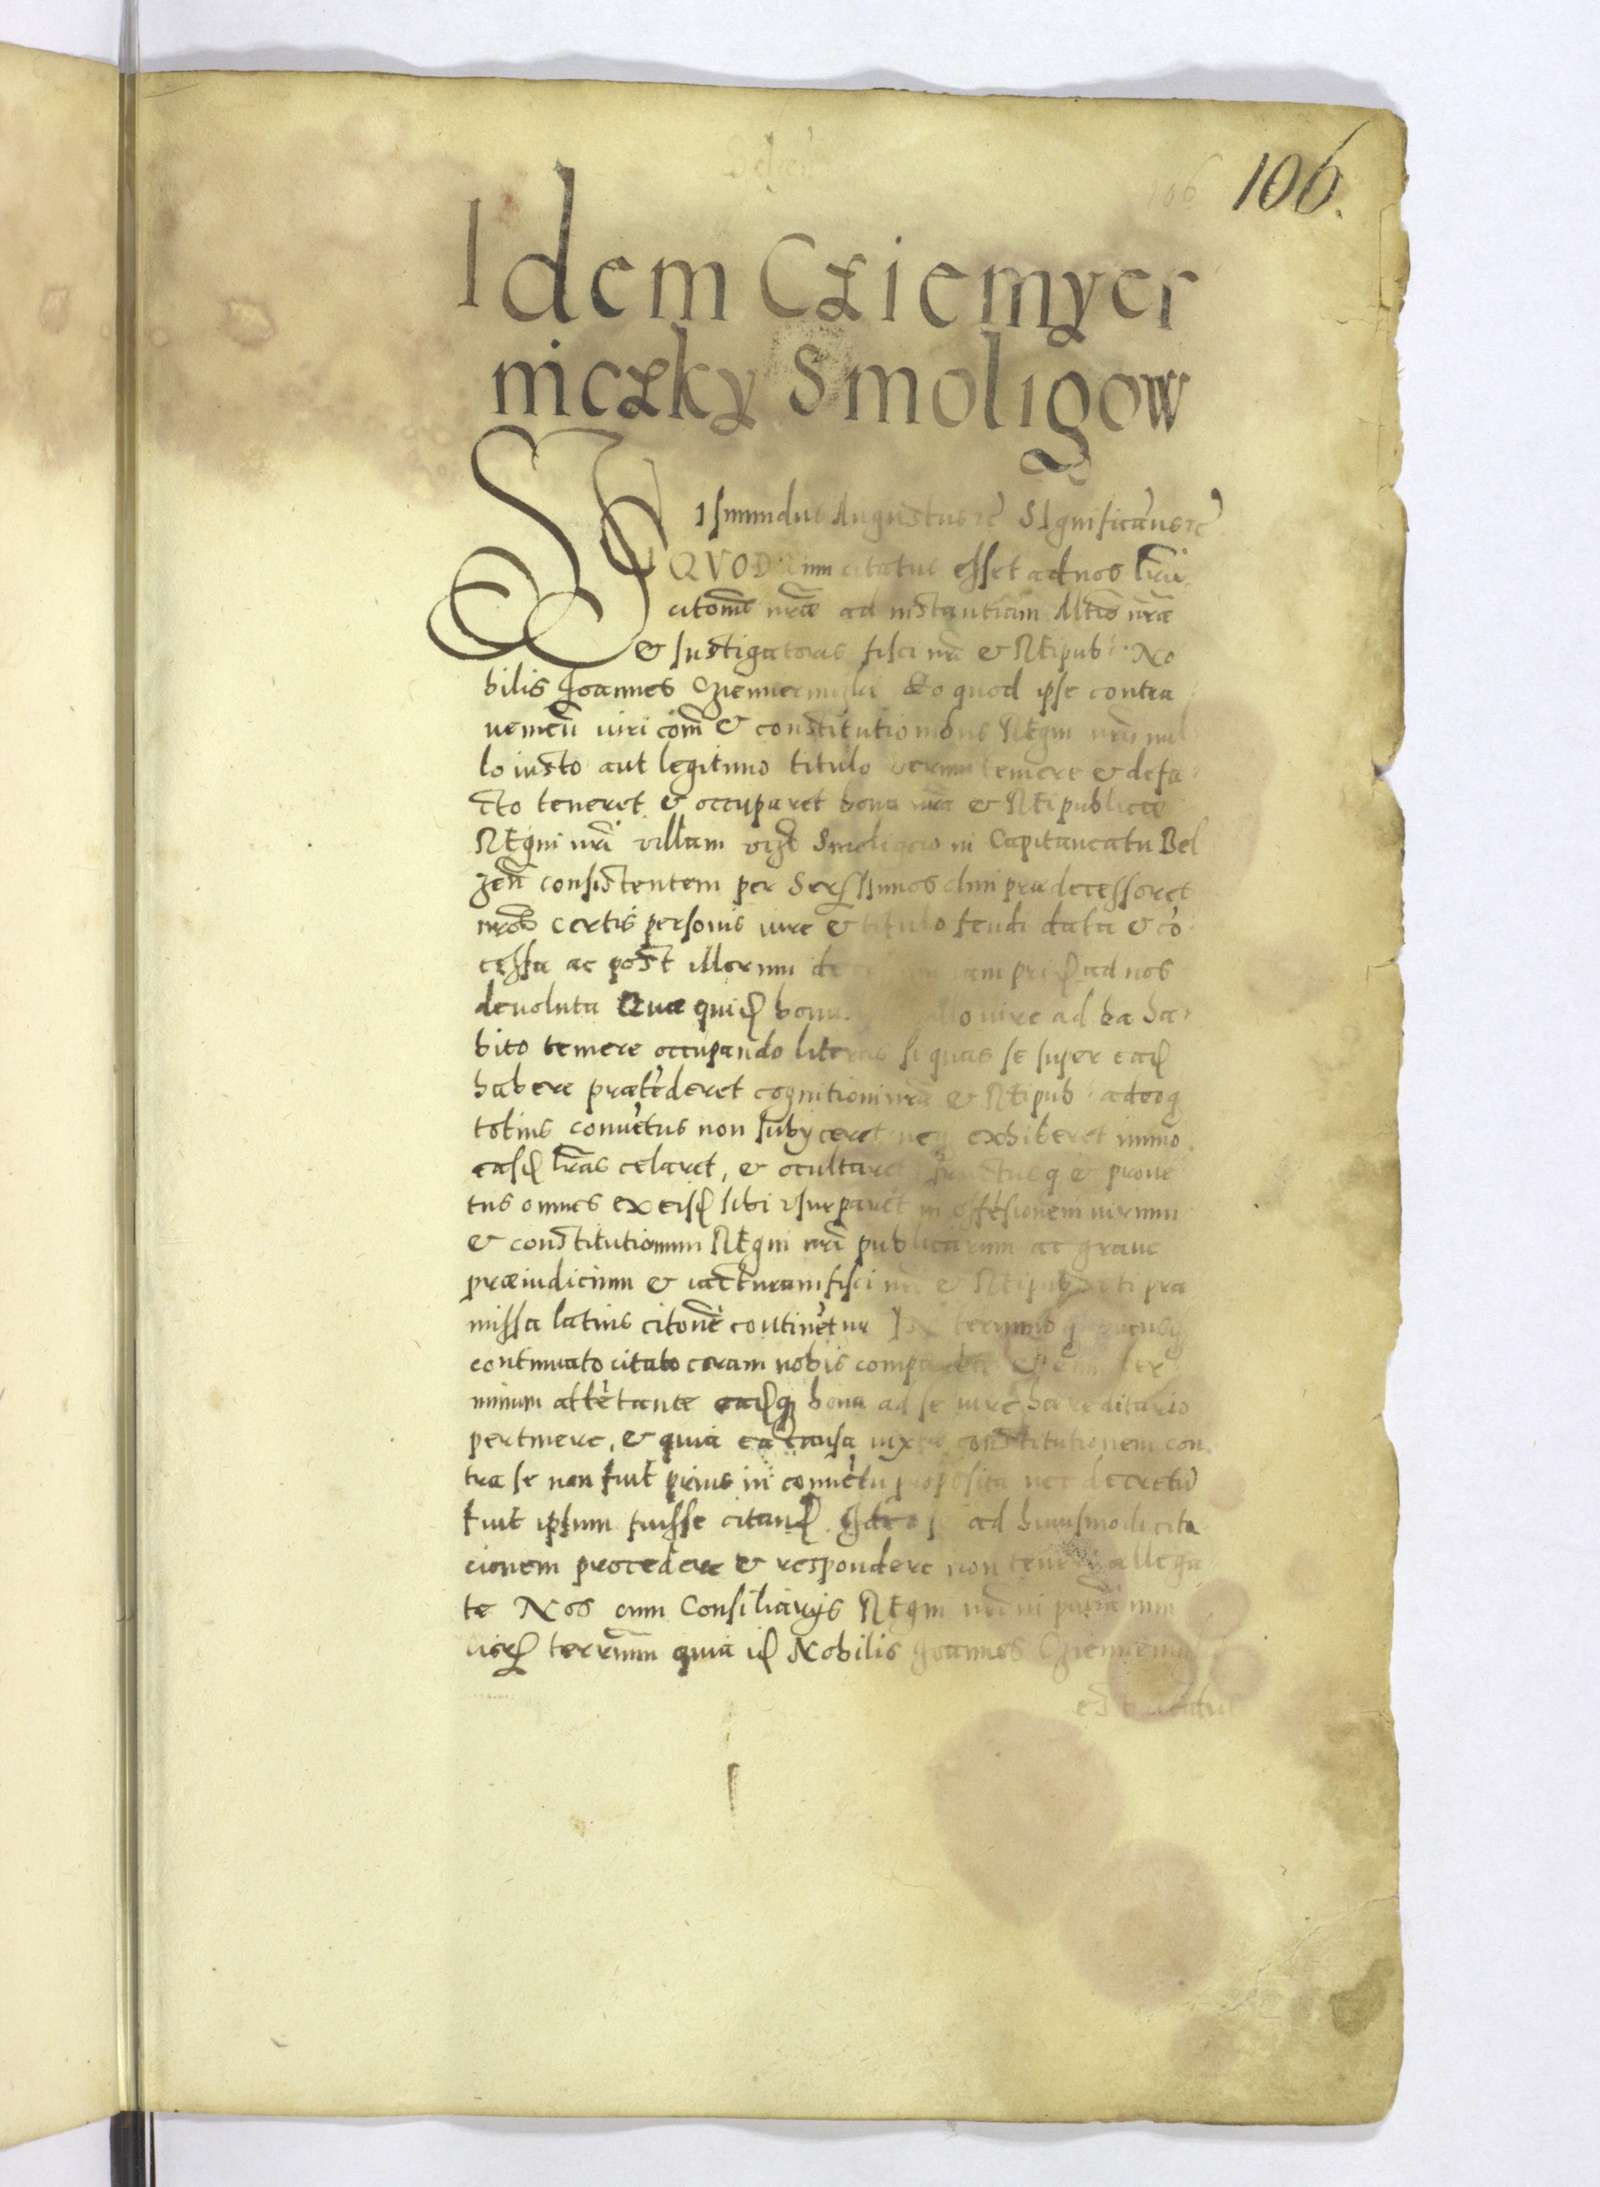 106.
Idem Cziemyer
niczky Smoligow
Sigismundus Augustus rc̃ SIgnificam̃us rc̃
QVOD cum citatus esset ad nos Lr̃is
citoñis nr̃æ ad instantiam Mtis nr̃æ
& Instigatoris fisci nr̃i & REipub: No
bilis Joannes Cziemiernicki Eo quod ipse contra
iuri com̃ & constitutiones REgni nr̃i nul
lo iusto aut legitimo titulo verum temere & defa
cto teneret & occuparet bona nr̃a & REipublicæ
REgni nr̃i villam vizt Smoligow in Capitaneatu Bel
zeñ consistentem per Ser: olim prædecessores
nr̃os certis personis iure & titulo feudi data & cõ
cessa ac post illorum ad nos
deuoluta Quæ quid bona nullo iure ad ea ha
bito temere occupando literas si quas se super ead
habere prætẽderet cognitioni nr̃æ & REipub: adeoq
totius conuẽtus non subyceret neq exhiberet immo
easd lr̃as celaret, & ocultaret fructusq & prouẽ
tus omnes ex eisd sibi vsurparet in offẽsionem iurium
& constitutionum REgni nr̃i publicarum ac graue
præiudicium & iacturam fisci nr̃i & REipub: uti præ
missa latius citoñe continẽtur IN termino
continuato citato coram nobis comparẽte & ter
minum attẽtante eadq bona ad se iure hæreditario
pertinere, & quia ea causa iuxta constitutionem con
tra se non fuit prius in conuẽtu proposita nec decretũ
fuit ipsum fuisse citand Ideo se ad huiusmodi cita
cionem procedere & respondere non teneri allega
te Nos cum Consiliarijs REgni nr̃i
terminum quia id Nobilis Joannes Cziemierni